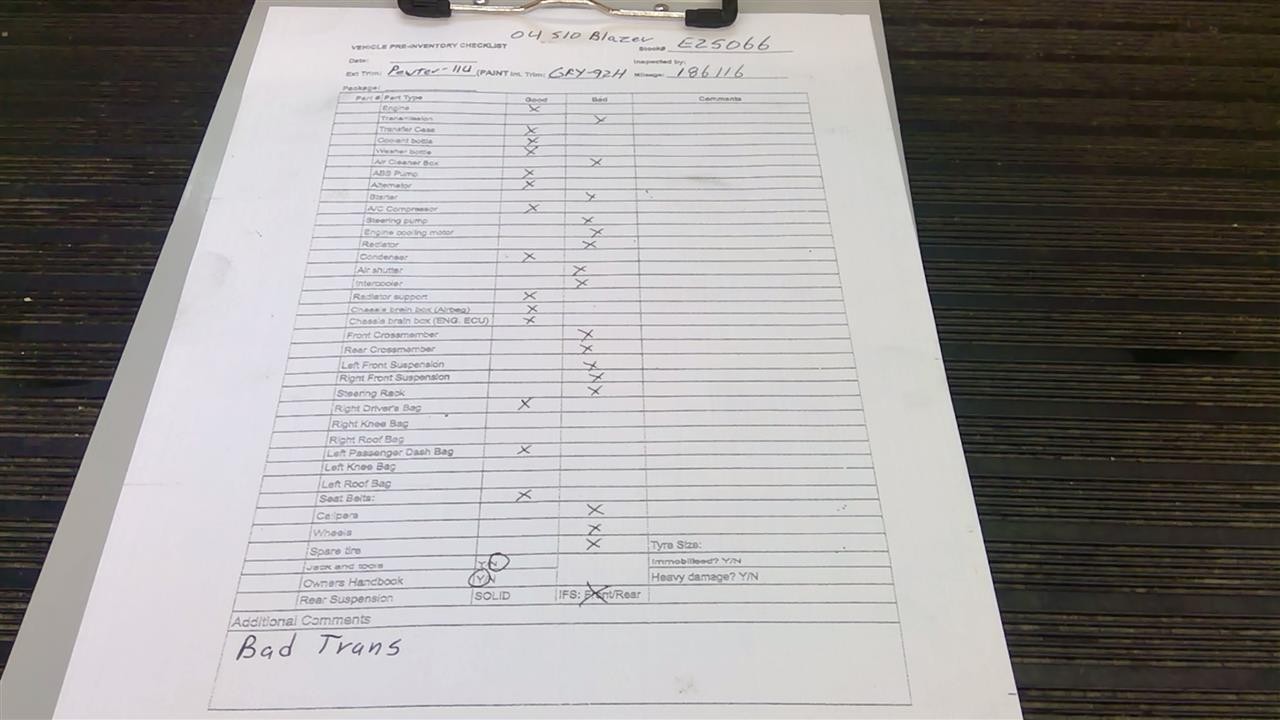 04 S10 Blazer
VEHICLE PRE-INVENTORY CHECKLIST Stock# E25066
Date: Inspected by:
Ext Trim: Pewter-11U (PAINT Int. Trim: GRY-92H Mileage: 186116
Package:
Part # Part Type Good Bad Comments
Engine X
Transmission X
Transfer Case X
Coolant bottle X
Washer bottle X
Air Cleaner Box X
ABS Pump X
Alternator X
Starter X
A/C Compressor X
Steering pump X
Engine cooling motor X
Radiator X
Condenser X
Air shutter X
Intercooler X
Radiator support X
Chassis brain box (Airbag) X
Chassis brain box (ENG. ECU) X
Front Crossmember X
Rear Crossmember X
Left Front Suspension X
Right Front Suspension X
Steering Rack X
Right Driver's Bag X
Right Knee Bag
Right Roof Bag
Left Passenger Dash Bag X
Left Knee Bag
Left Roof Bag
Seat Belts: X
Calipers X
Wheels X
Spare tire X Tyre Size:
Jack and tools Y/N Immobilised? Y/N
Owners Handbook Y/N Heavy damage? Y/N
Rear Suspension SOLID IFS: Front/Rear
Additional Comments
Bad Trans